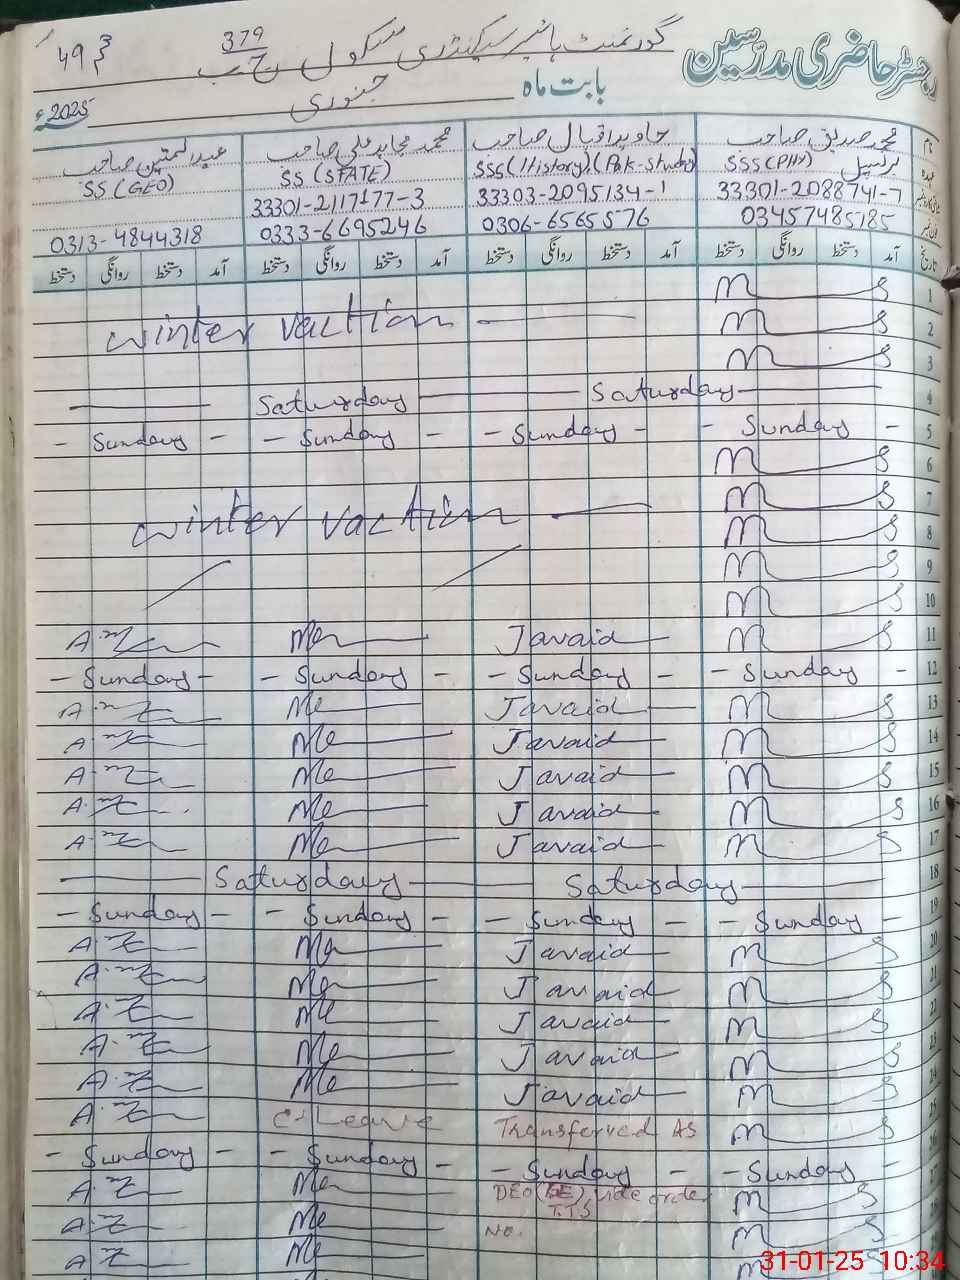 رجسٹر حاضری مدرسین گورنمنٹ ہائیر سیکنڈری سکول 379 ج ب
49
بابت ماہ جنوری 2025ء
نام محمد صدیق صاحب جاوید اقبال صاحب محمد مجاہد علی صاحب عبدالمتین صاحب
عہدہ پرنسپل SSS(PHY) SSS(History)(Pak-Study) SS (STATE) SS (GEO)
33301-2088741-7 33303-2095134-1 33301-2117177-3
03457485185 0306-6565576 0333-6695246 0313-4844318
تاریخ آمد دستخط روانگی دستخط آمد دستخط روانگی دستخط آمد دستخط روانگی دستخط آمد دستخط روانگی دستخط
1 M S
winter vaction 2 M S
3 M S
Saturday Saturday 4
- Sunday - - Sunday - - Sunday - - Sunday - 5
6 M S
7 M S
winter vaction 8 M S
9 M S
10 M S
Javaid M S 11
- Sunday - - Sunday - - Sunday - - Sunday - 12
Me Javaid M S 13
Me Javaid M S 14
Me Javaid M S 15
Me Javaid M S 16
Me Javaid M S 17
Saturday Saturday 18
- Sunday - - Sunday - - Sunday - - Sunday - 19
Me Javaid M S 20
Me Javaid M S 21
Me Javaid M S 22
Me Javaid M S 23
Me Javaid M S 24
C-Leave Transferred As M S 25
- Sunday - - Sunday - - Sunday - - Sunday - 26
Me DEO (SE) vide order M S 27
TTS
Me No. M S
Me M S
31-01-25 10:34